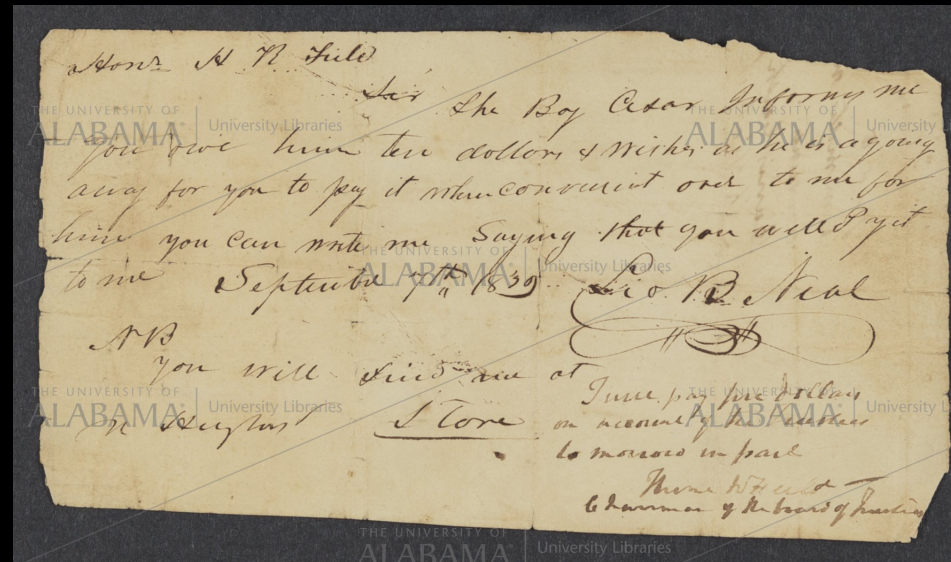 Honr H N Field
Sir The Boy Cesar Informs me
you owe him ten dollars & wishes as he is a going
away for you to pay it when convenient over to me for
him you can write me Saying that you will Pay it
to me September 7th 1839 Geo. B. Neal
NB
You will find me at
Store
I will pay five dollars
on account of the
to morrow in part
Chairman of the board of Trustees
THE UNIVERSITY OF
ALABAMA University Libraries